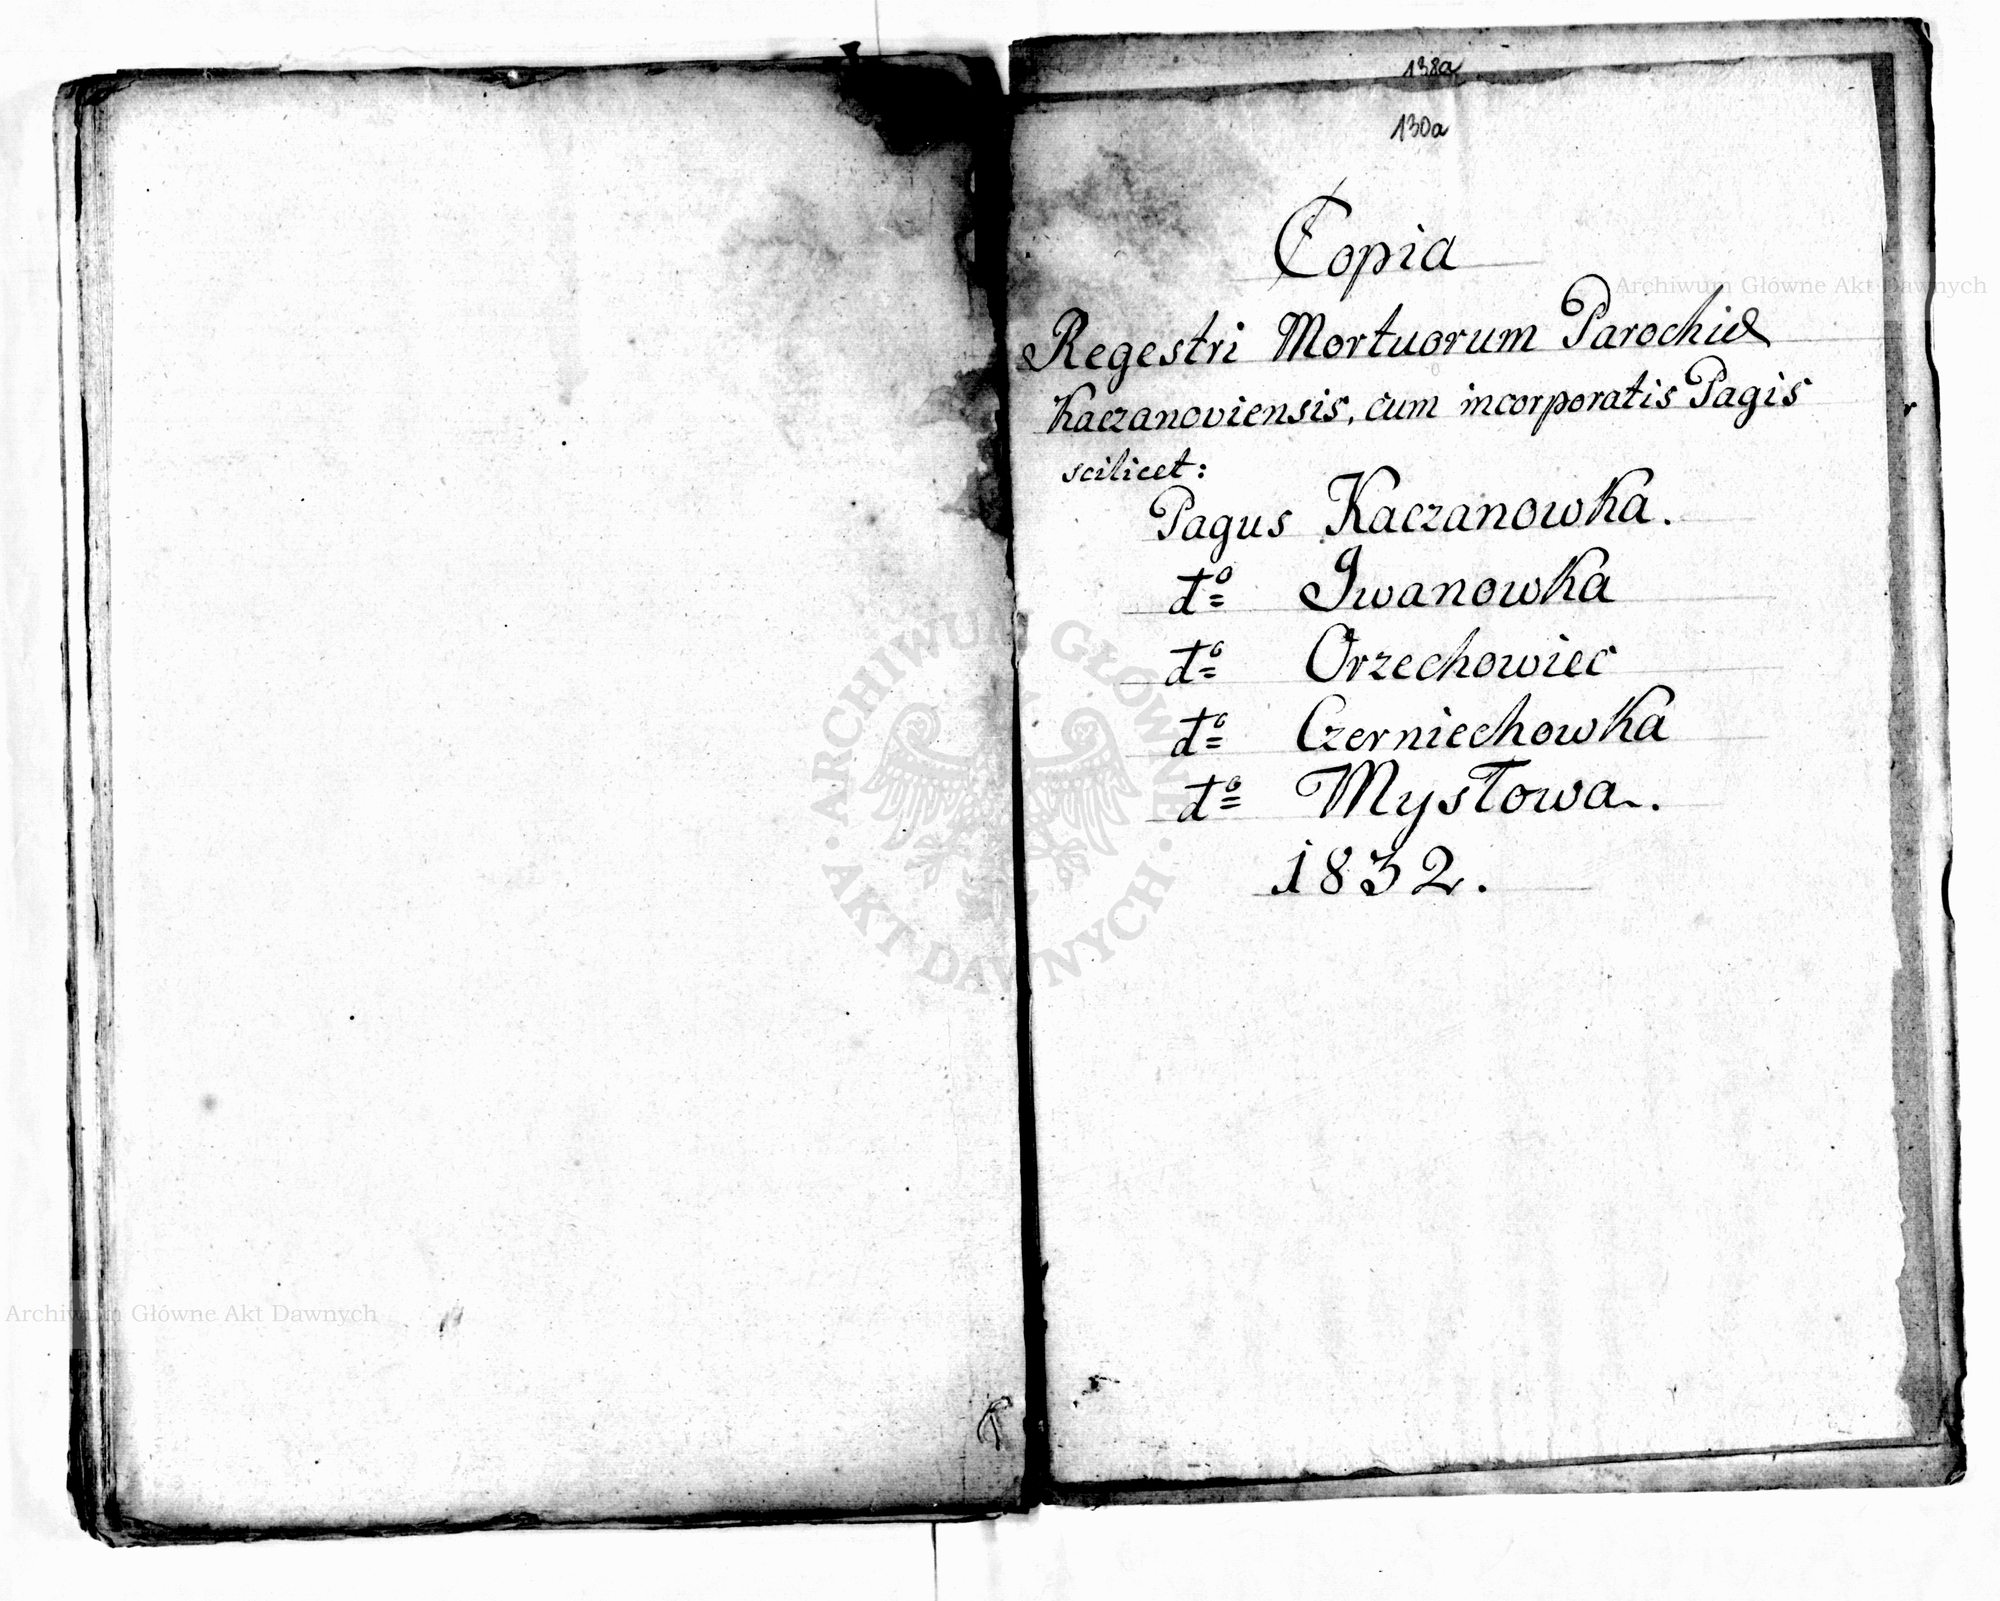 138a
130a
Copia
Regestri Mortuorum Parochiæ
Kaczanoviensis, cum incorporatis Pagis
scilicet:
Pagus Kaczanowka.
dº Iwanowka
dº Orzechowiec
dº Czerniechowka
dº Mysłowa.
1832.
Archiwum Główne Akt Dawnych
ARCHIWUM GŁÓWNE
AKT DAWNYCH
Archiwum Główne Akt Dawnych